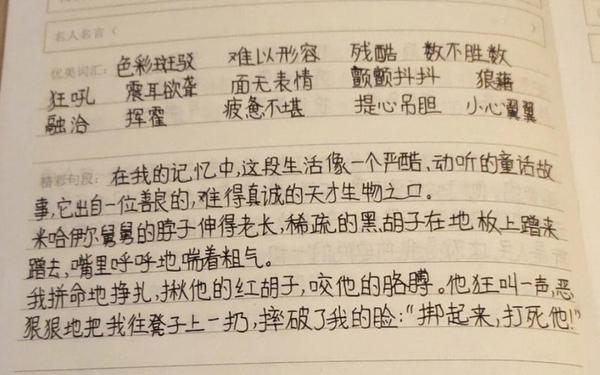 名人名言(
优美词汇: 色彩斑驳 难以形容 残酷 数不胜数
狂吼 震耳欲聋 面无表情 颤颤抖抖 狼藉
融洽 挥霍 疲惫不堪 提心吊胆 小心翼翼
精彩句段: 在我的记忆中,这段生活像一个严酷、动听的童话故
事,它出自一位善良的,难得真诚的天才生物之口。
米哈伊尔舅舅的脖子伸得老长,稀疏的黑胡子在地板上蹭来
蹭去,嘴里呼呼地喘着粗气。
我拼命地挣扎,揪他的红胡子,咬他的胳膊。他狂叫一声,恶
狠狠地把我往凳子上一扔,摔破了我的脸:“绑起来,打死他!”